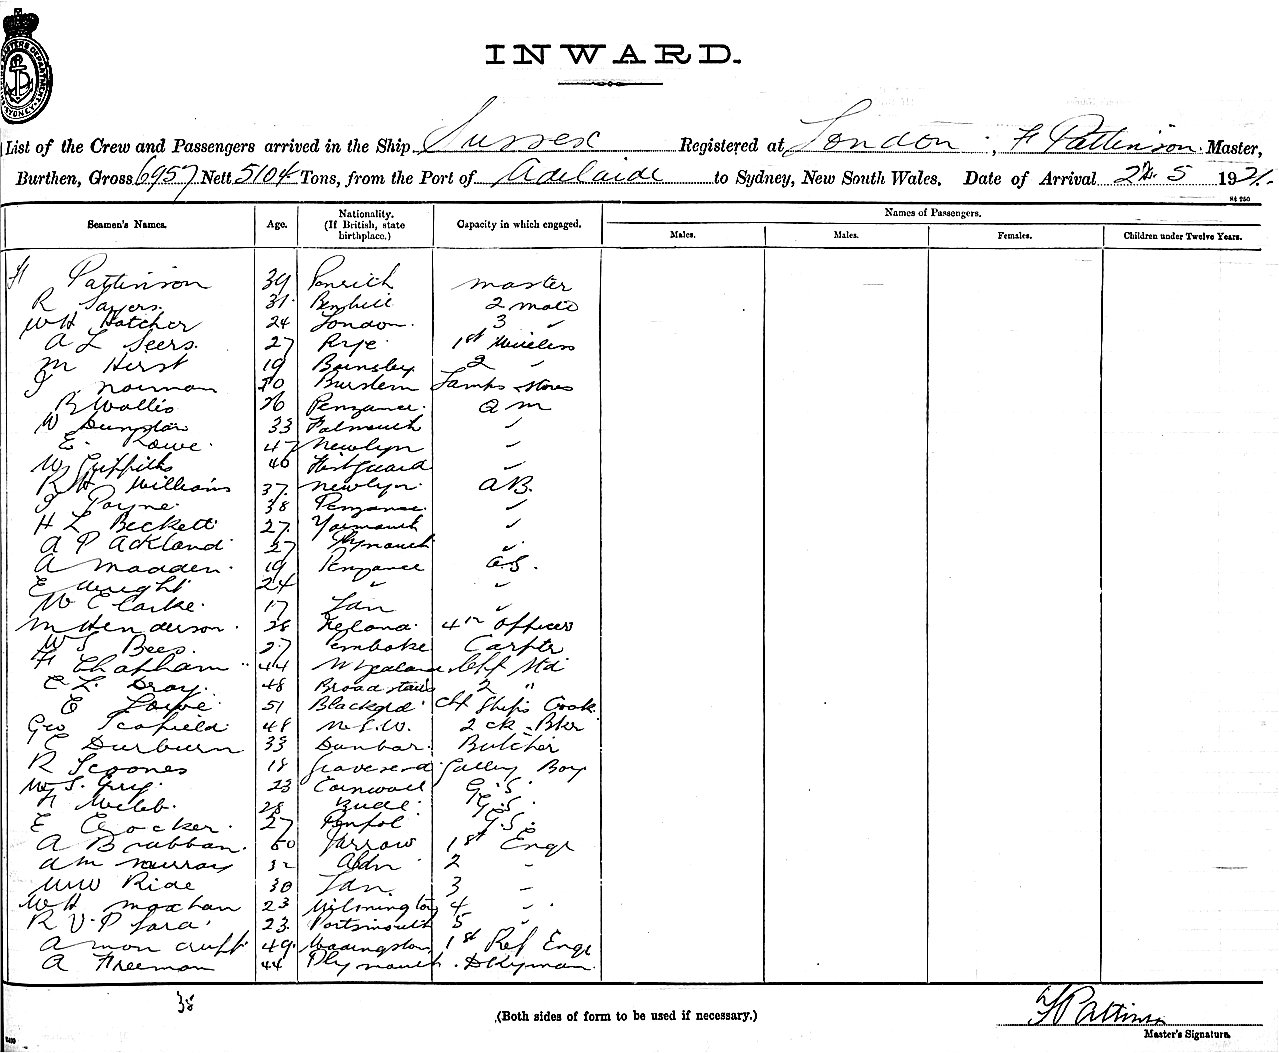 INWARD.
List of the Crew and Passengers arrived in the Ship Sussex Registered at London ; H Pattinson Master,
Burthen, Gross 6957 Nett 5104 Tons, from the Port of Adelaide to Sydney, New South Wales. Date of Arrival 5 1921.
St 250
Seamen's Names. Age. Nationality. (If British, state birthplace.) Capacity in which engaged. Names of Passengers.
Males. Males. Females. Children under Twelve Years.
H Pattinson 39 Penrith master
R Sayers 31 Bexhill 2 mate
W H Hatcher 24 London 3 "
A L Seers 27 Rye 1st Wireless
M Hirst 19 Barnsley 2 "
Norman Burslem Lamps Stores
R Wallis 26 Penzance A M
W 33 Falmouth "
E. Rowe 47 Newlyn "
W Griffiths 40 Fishguard "
R H Williams 37 Newlyn AB.
Payne 38 Penzance "
H L Beckett 27 Yarmouth "
A P Ackland 27 Plymouth "
A Madden 19 Penzance O.S.
E Wright 24 " "
W Clarke 17 Lan "
M Henderson 28 4th Officer
W S Bees 27 Pembroke Carptr
H Chapham 44 N Zealand Chf Std
E L Gray 48 Broadstairs 2 "
E Lowe 51 Ch Ships Cook
Geo Scofield 48 N.S.W. 2 ck Bker
E Durburn 33 Dunbar Butcher
R Scoones 18 Gravesend Galley Boy
W S. Guy 23 Cornwall G.S.
H Webb 28 Bude G.S.
E Crocker 27 G.S.
A Brabban 60 Jarrow 1st Engr
A M Murray 32 Abdn 2 "
W W Ride 30 Lan 3 "
W H Moxham 23 Wilmington 4 "
R V. P 23 Portsmouth 5 "
A Moncruff 49 1st Ref Engr
A Freeman 44 Plymouth Dkyman
38
(Both sides of form to be used if necessary.)
H Pattinson
Master's Signature.